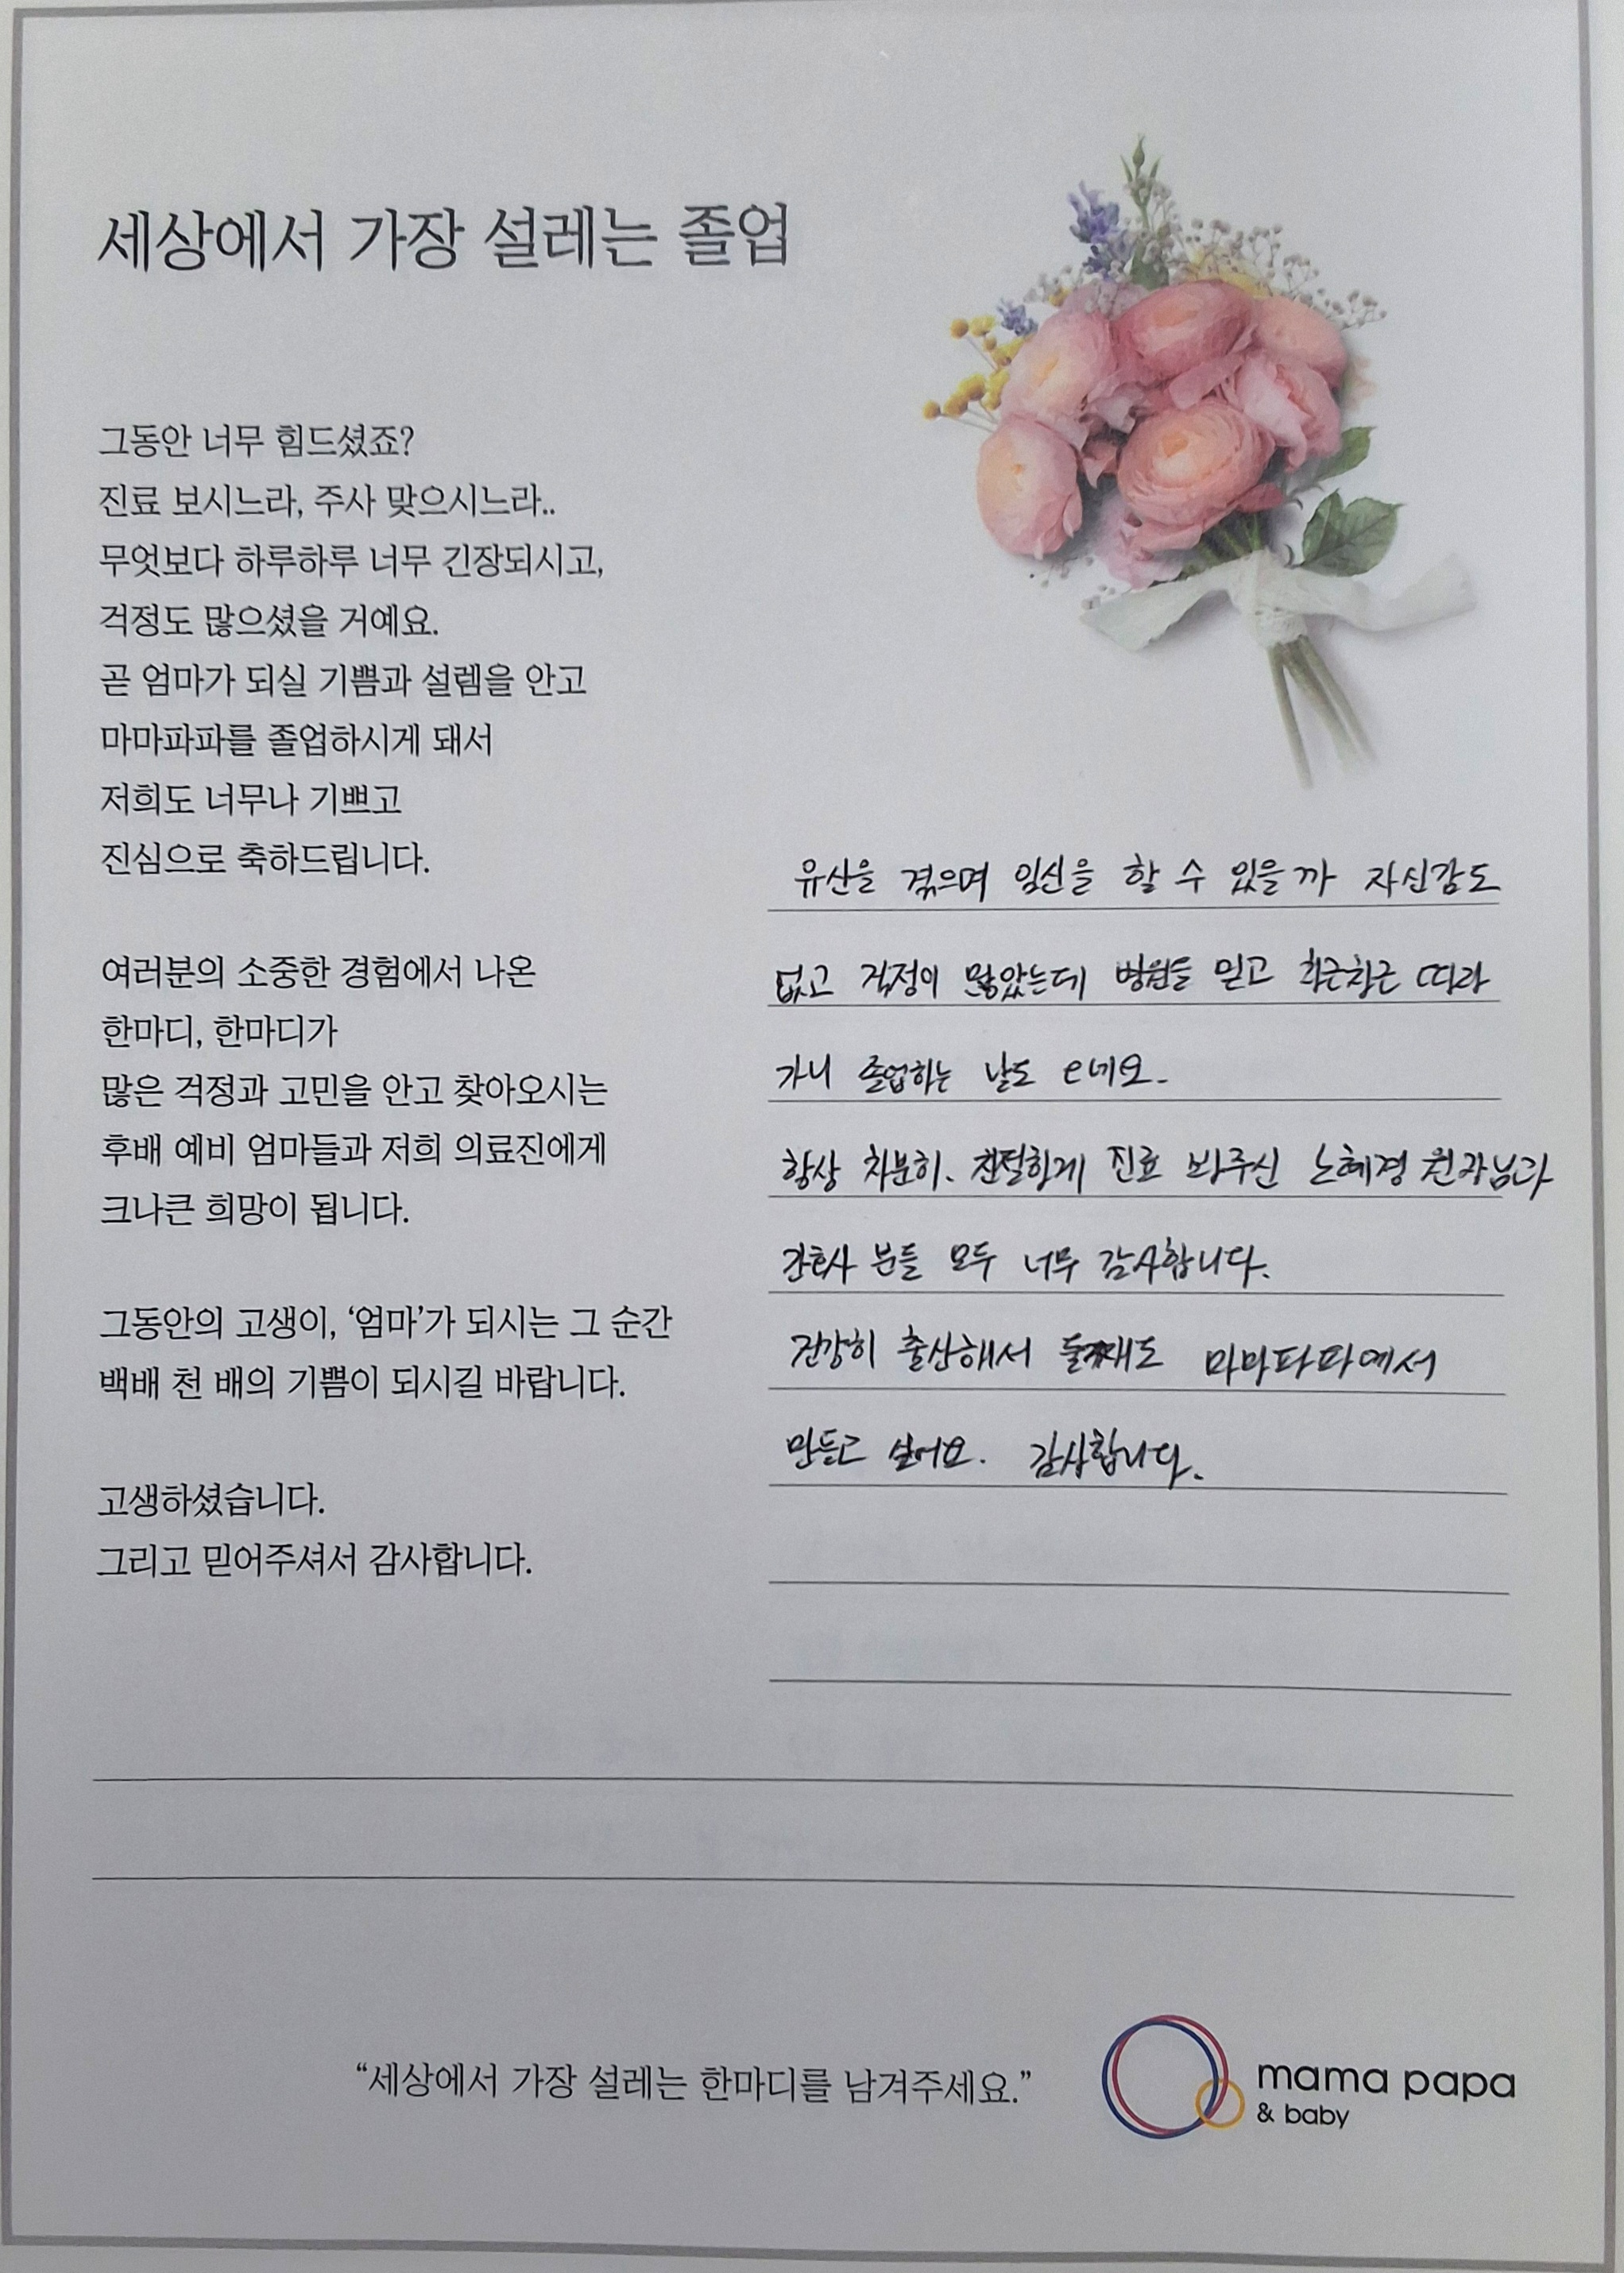 세상에서 가장 설레는 졸업
그동안 너무 힘드셨죠?
진료 보시느라, 주사 맞으시느라..
무엇보다 하루하루 너무 긴장되시고,
걱정도 많으셨을 거예요.
곧 엄마가 되실 기쁨과 설렘을 안고
마마파파를 졸업하시게 돼서
저희도 너무나 기쁘고
진심으로 축하드립니다.
여러분의 소중한 경험에서 나온
한마디, 한마디가
많은 걱정과 고민을 안고 찾아오시는
후배 예비 엄마들과 저희 의료진에게
크나큰 희망이 됩니다.
그동안의 고생이, ‘엄마’가 되시는 그 순간
백배 천 배의 기쁨이 되시길 바랍니다.
고생하셨습니다.
그리고 믿어주셔서 감사합니다.
유산을 겪으며 임신을 할 수 있을까 자신감도
없고 걱정이 많았는데 병원을 믿고 차근차근 따라
가니 졸업하는 날도 오네요.
항상 차분히. 친절하게 진료 봐주신 노혜경 원장님과
간호사 분들 모두 너무 감사합니다.
건강히 출산해서 둘째도 마마파파에서
만들고 싶어요. 감사합니다.
“세상에서 가장 설레는 한마디를 남겨주세요.”
mama papa
& baby